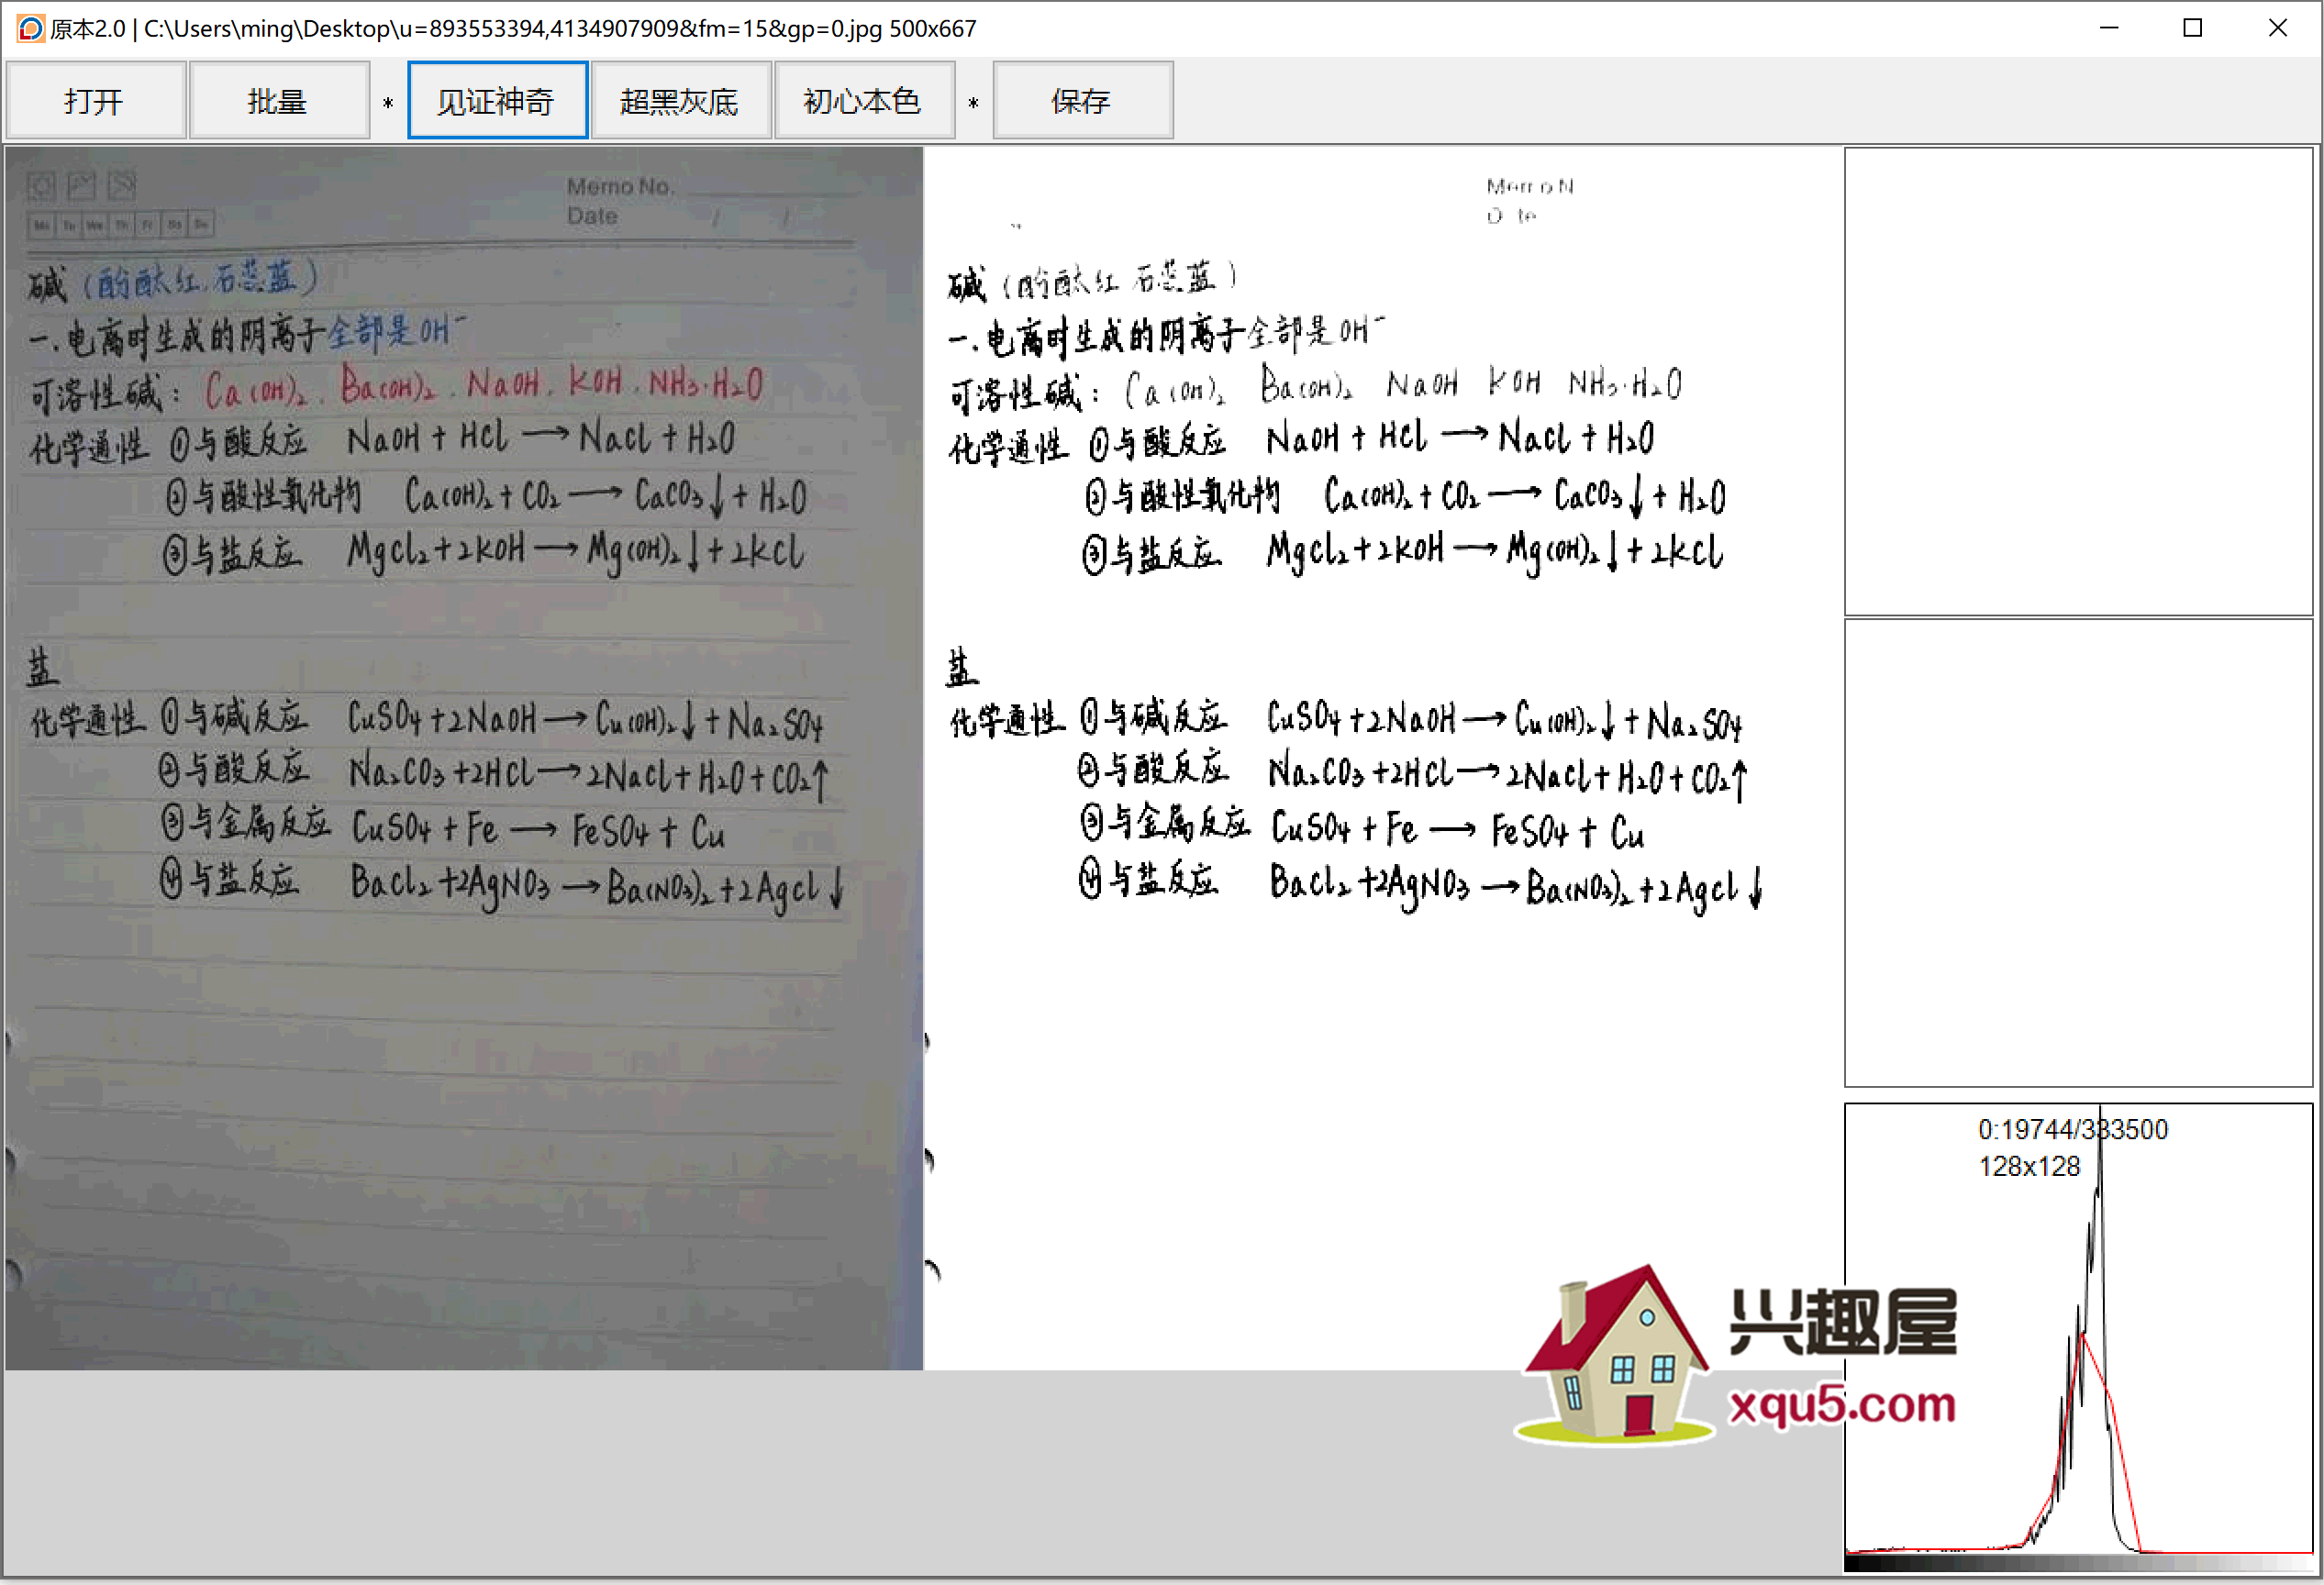 原本2.0 | C:\Users\ming\Desktop\u=893553394,4134907909&fm=15&gp=0.jpg 500x667
打开 批量 * 见证神奇 超黑灰底 初心本色 * 保存
Memo No.
Date / /
Mo Tu We Th Fr Sa Su
碱（酚酞红.石蕊蓝）
一.电离时生成的阴离子全部是OH⁻
可溶性碱：Ca(OH)₂、Ba(OH)₂、NaOH、KOH、NH₃·H₂O
化学通性 ①与酸反应 NaOH + HCl → NaCl + H₂O
②与酸性氧化物 Ca(OH)₂ + CO₂ → CaCO₃↓ + H₂O
③与盐反应 MgCl₂ + 2KOH → Mg(OH)₂↓ + 2KCl
盐
化学通性 ①与碱反应 CuSO₄ + 2NaOH → Cu(OH)₂↓ + Na₂SO₄
②与酸反应 Na₂CO₃ + 2HCl → 2NaCl + H₂O + CO₂↑
③与金属反应 CuSO₄ + Fe → FeSO₄ + Cu
④与盐反应 BaCl₂ + 2AgNO₃ → Ba(NO₃)₂ + 2AgCl↓
碱（酚酞红 石蕊蓝）
一.电离时生成的阴离子全部是OH⁻
可溶性碱：Ca(OH)₂ Ba(OH)₂ NaOH KOH NH₃·H₂O
化学通性 ①与酸反应 NaOH + HCl → NaCl + H₂O
②与酸性氧化物 Ca(OH)₂ + CO₂ → CaCO₃↓ + H₂O
③与盐反应 MgCl₂ + 2KOH → Mg(OH)₂↓ + 2KCl
盐
化学通性 ①与碱反应 CuSO₄ + 2NaOH → Cu(OH)₂↓ + Na₂SO₄
②与酸反应 Na₂CO₃ + 2HCl → 2NaCl + H₂O + CO₂↑
③与金属反应 CuSO₄ + Fe → FeSO₄ + Cu
④与盐反应 BaCl₂ + 2AgNO₃ → Ba(NO₃)₂ + 2AgCl↓
0:19744/333500
128x128
兴趣屋
xqu5.com